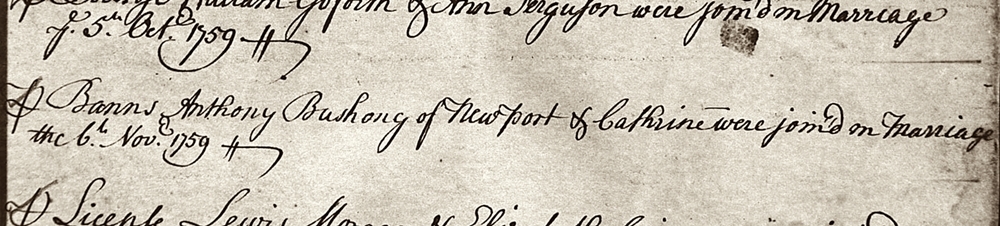 Goforth & Ann Ferguson were join'd in Marriage
ye 5th Octr 1759
⅌ Banns Anthony Bushong of Newport & Cathrine were join'd in Marriage
the 6th Novr 1759
⅌ Licence Lewis